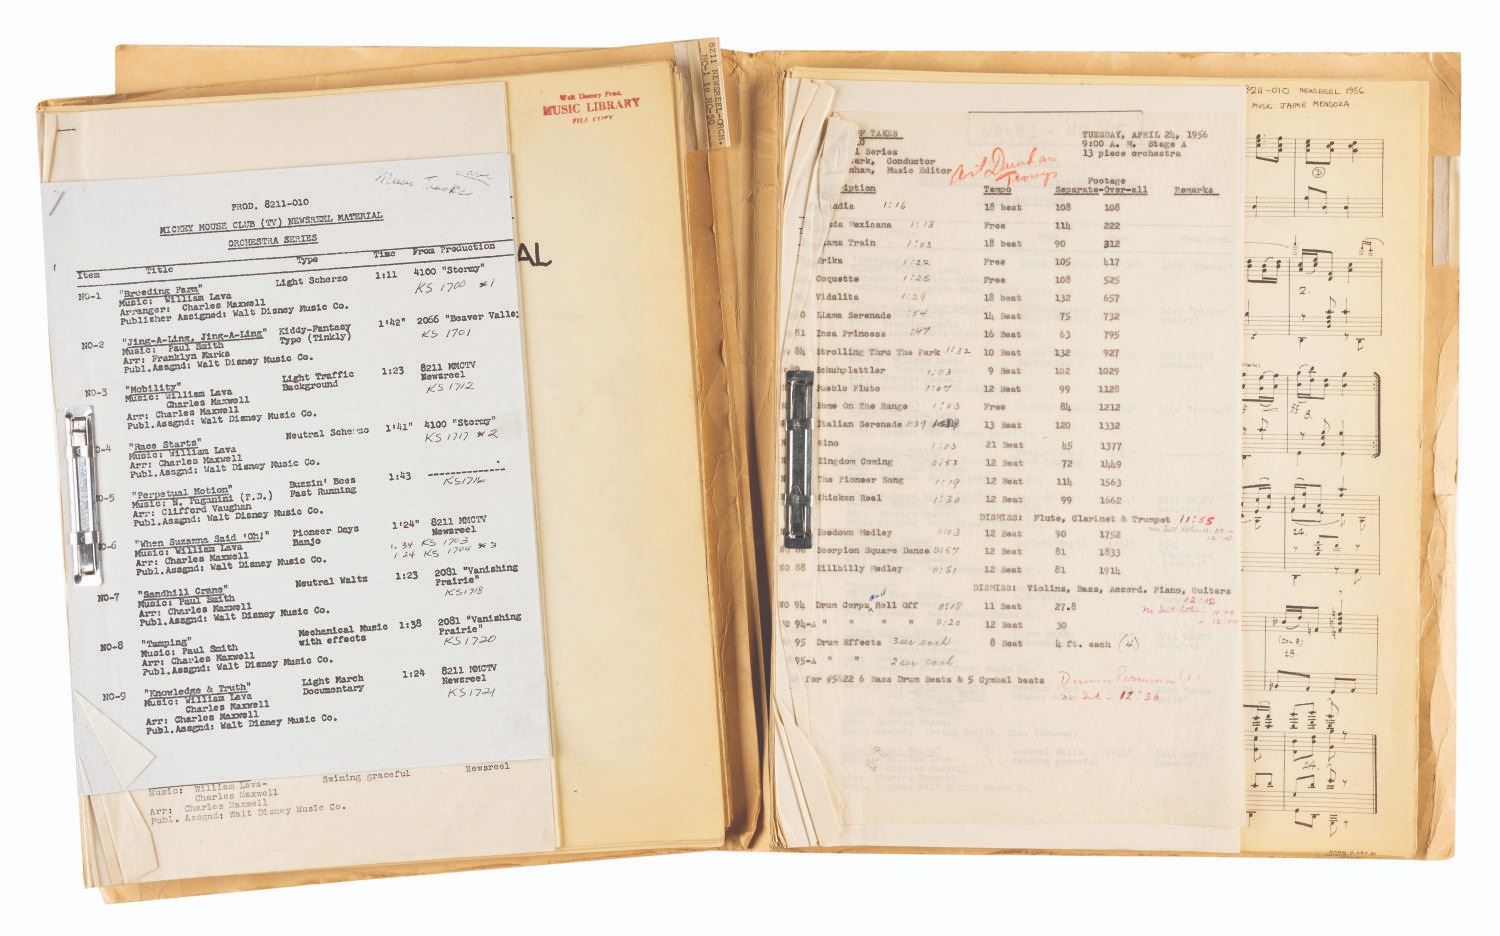 8211 NEWSREEL-ORCH.
NO-1 to NO-50
Walt Disney Prod.
MUSIC LIBRARY
FILE COPY
Music Tracks
PROD. 8211-010
MICKEY MOUSE CLUB (TV) NEWSREEL MATERIAL
ORCHESTRA SERIES
Item Title Type Time From Production
NO-1 "Breeding Farm" Light Scherzo 1:11 4100 "Stormy"
Music: William Lava KS 1700 #1
Arranger: Charles Maxwell
Publisher Assigned: Walt Disney Music Co.
NO-2 "Jing-A-Ling, Jing-A-Ling" Kiddy-Fantasy 1'42" 2066 "Beaver Valley
Music: Paul Smith Type (Tinkly) KS 1701
Arr: Franklyn Marks
Publ.Assgnd: Walt Disney Music Co.
NO-3 "Mobility" Light Traffic 1:23 8211 MMCTV
Music: William Lava Background Newsreel
Charles Maxwell KS 1712
Arr: Charles Maxwell
Publ.Assgnd: Walt Disney Music Co.
O-4 "Race Starts" Neutral Scherzo 1'41" 4100 "Stormy"
Music: William Lava KS 1717 #2
Arr: Charles Maxwell
Publ.Assgnd: Walt Disney Music Co.
O-5 "Perpetual Motion" Buzzin' Bees 1:43
Music: N. Paganini (P.D.) Fast Running KS1716
Arr: Clifford Vaughan
Publ.Assgnd: Walt Disney Music Co.
O-6 "When Suzanna Said 'Oh!" Pioneer Days 1'24" 8211 MMCTV
Music: William Lava Banjo Newsreel
Arr: Charles Maxwell 1.34 KS 1703
Publ.Assgnd: Walt Disney Music Co. 1:24 KS 1704 #3
NO-7 "Sandhill Crane" Neutral Waltz 1:23 2081 "Vanishing
Music: Paul Smith Prairie"
Arr: Charles Maxwell KS1718
Publ.Assgnd: Walt Disney Music Co.
NO-8 "Tamping" Mechanical Music 1:38 2081 "Vanishing
Music: Paul Smith with effects Prairie"
Arr: Charles Maxwell KS1720
Publ.Assgnd: Walt Disney Music Co.
NO-9 "Knowledge & Truth" Light March 1:24 8211 MMCTV
Music: William Lava Documentary Newsreel
Charles Maxwell KS1721
Arr: Charles Maxwell
Publ.Assgnd: Walt Disney Music Co.
AL
Swiming graceful Newsreel
Music: William Lava-
Charles Maxwell
Arr: Charles Maxwell
Publ. Assgnd: Walt Disney Music Co.
OF TAKES TUESDAY, APRIL 24, 1956
9:00 A. M. Stage A
l Series 13 piece orchestra
ark, Conductor
aham, Music Editor
Art Dunham
Footage
iption Tempo Separate-Over-all Remarks
adia 1:16 18 beat 108 108
ada Mexicana 1:13 Free 114 222
ama Train 1:03 18 beat 90 312
Erika 1:22 Free 105 417
Coquette 1:25 Free 108 525
Vidalita 1:29 18 beat 132 657
0 Llama Serenade :54 14 Beat 75 732
81 Inca Princess :47 16 Beat 63 795
84 Strolling Thru The Park 1:32 10 Beat 132 927
Schuhplattler 1:03 9 Beat 102 1029
Pueblo Pluto 1:07 12 Beat 99 1128
Home On The Range 1:03 Free 84 1212
Italian Serenade 1:39 13 Beat 120 1332
Gino 1:03 21 Beat 45 1377
Kingdom Coming 0:52 12 Beat 72 1449
The Pioneer Song 1:19 12 Beat 114 1563
Chicken Reel 1:30 12 Beat 99 1662
DISMISS: Flute, Clarinet & Trumpet 11:55
Hoedown Medley 1:03 12 Beat 90 1752
Scorpion Square Dance 0:57 12 Beat 81 1833
NO 88 Hillbilly Medley 0:51 12 Beat 81 1914
DISMISS: Violins, Bass, Accord. Piano, Guitars
12:12
NO 94 Drum Corps and Roll Off 0:18 11 Beat 27.8
NO 94-A " " " " 0:20 12 Beat 30
95 Drum Effects 3 sec each 8 Beat 4 ft. each (4)
95-A " " 2 sec each
for #5622 6 Bass Drum Beats & 5 Cymbal beats
12:30
8211-010 NEWSREEL 1956
MUSIC: JAIME MENDOZA
2.
ff 8.
14.
18.
24.